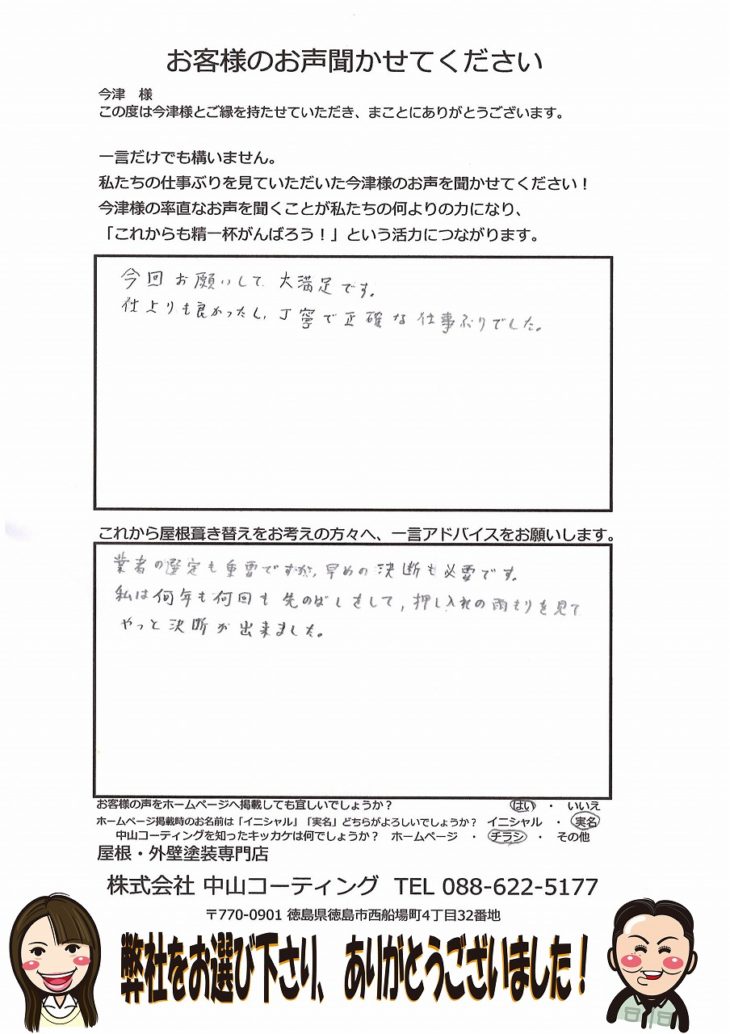 お客様のお声聞かせてください
今津　様
この度は今津様とご縁を持たせていただき、まことにありがとうございます。
一言だけでも構いません。
私たちの仕事ぶりを見ていただいた今津様のお声を聞かせてください！
今津様の率直なお声を聞くことが私たちの何よりの力になり、
「これからも精一杯がんばろう！」という活力につながります。
今回お願いして大満足です。
仕上りも良かったし、丁寧で正確な仕事ぶりでした。
これから屋根葺き替えをお考えの方々へ、一言アドバイスをお願いします。
業者の選定も重要ですが、早めの決断も必要です。
私は何年も何回も先のばしをして、押し入れの雨もりを見て
やっと決断が出来ました。
お客様の声をホームページへ掲載しても宜しいでしょうか？　はい　・　いいえ
ホームページ掲載時のお名前は「イニシャル」「実名」どちらがよろしいでしょうか？　イニシャル　・　実名
中山コーティングを知ったキッカケは何でしょうか？　ホームページ　・　チラシ　・　その他
屋根・外壁塗装専門店
株式会社 中山コーティング　TEL 088-622-5177
〒770-0901 徳島県徳島市西船場町4丁目32番地
弊社をお選び下さり、ありがとうございました！